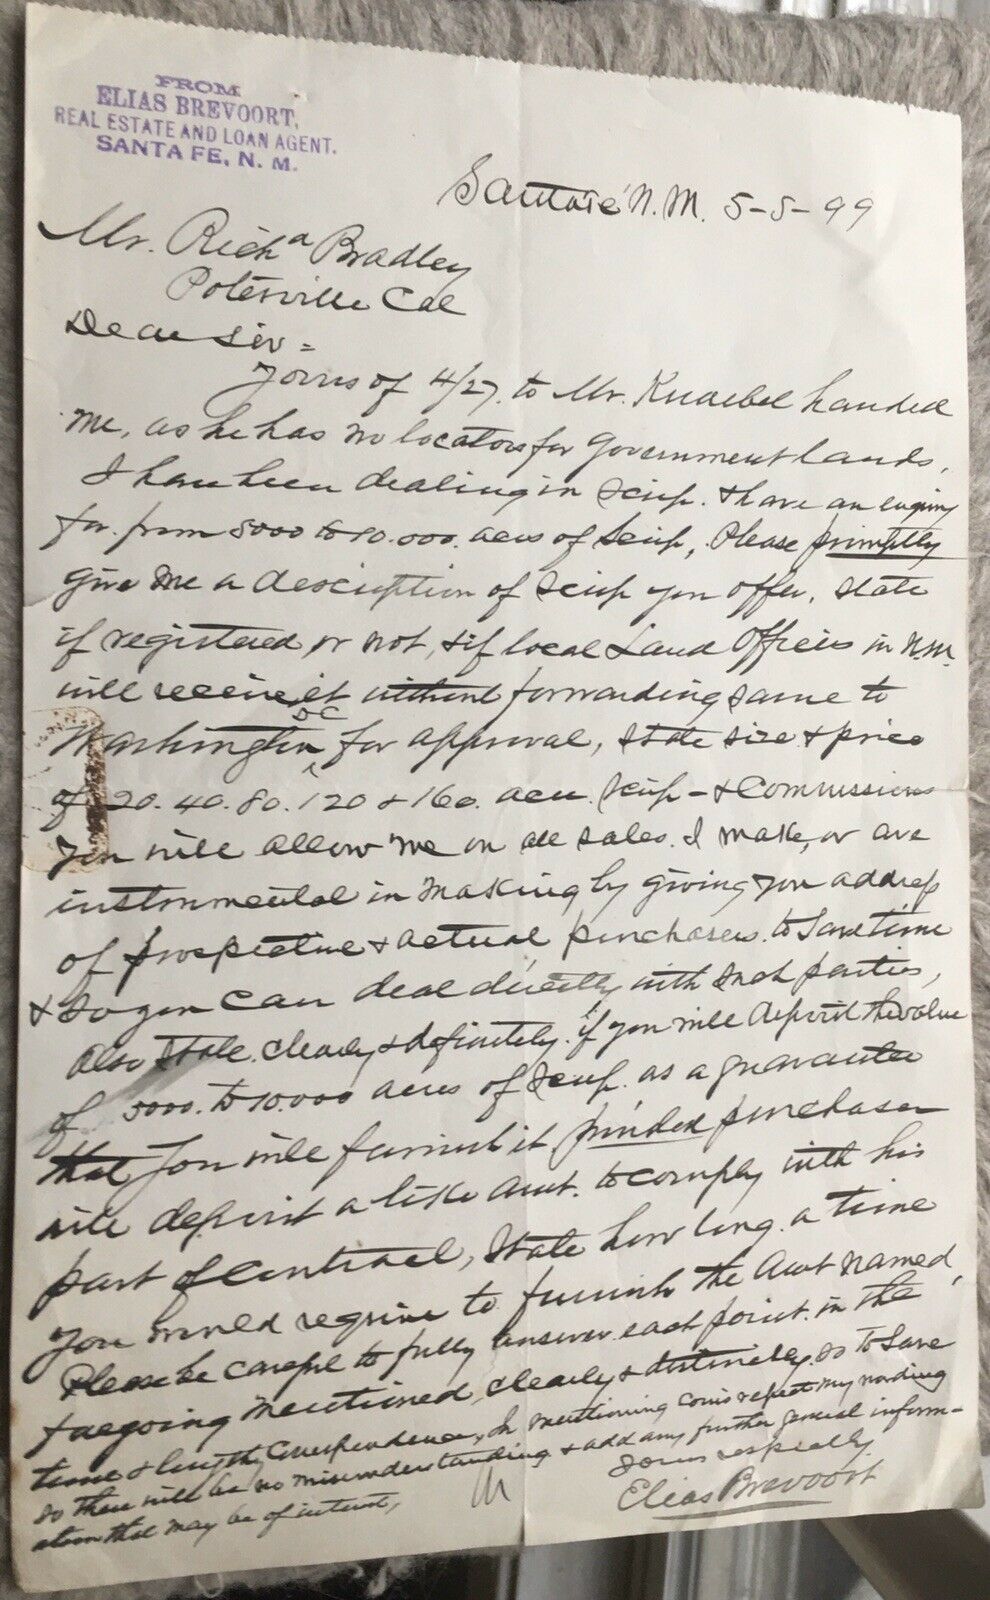 FROM
ELIAS BREVOORT,
REAL ESTATE AND LOAN AGENT.
SANTA FE, N. M.
Santa Fe N.M. 5-5-99
Mr. Richd Bradley
Poterville Cal
Dear Sir =
Yours of 4/27. to Mr. Knaebel handed
me, as he has no locators for Government lands,
I have been dealing in scrip. & have an enquiry
for from 5000 to 10.000. acres of Scrip, Please promptly
give me a description of scrip you offer, state
if registered or not, & if local Land Offices in N.M.
will receive it without forwarding same to
Washington DC for approval, state size & price
of 20. 40. 80. 120 & 160. acre scrip - & Commissions
you will allow me on all sales. I make, or are
instrumental in making by giving you address
of prospective & actual purchasers. to save time
& so you can deal directly with such parties,
also state. clearly & definitely. if you will deposit the value
of 5000. to 10.000 acres of scrip. as a guarantee
that you will furnish it provided purchaser
will deposit a like amt. to comply with his
part of contract, state how long a time
you would require to furnish the amt named,
Please be careful to fully answer each point. in the
foregoing mentioned, clearly & distinctly, so to save
time & lengthy correspondence, In mentioning coms repeat my wording
so there will be no misunderstanding & add any further general inform-
ation that may be of interest,
Yours respectfully
Elias Brevoort